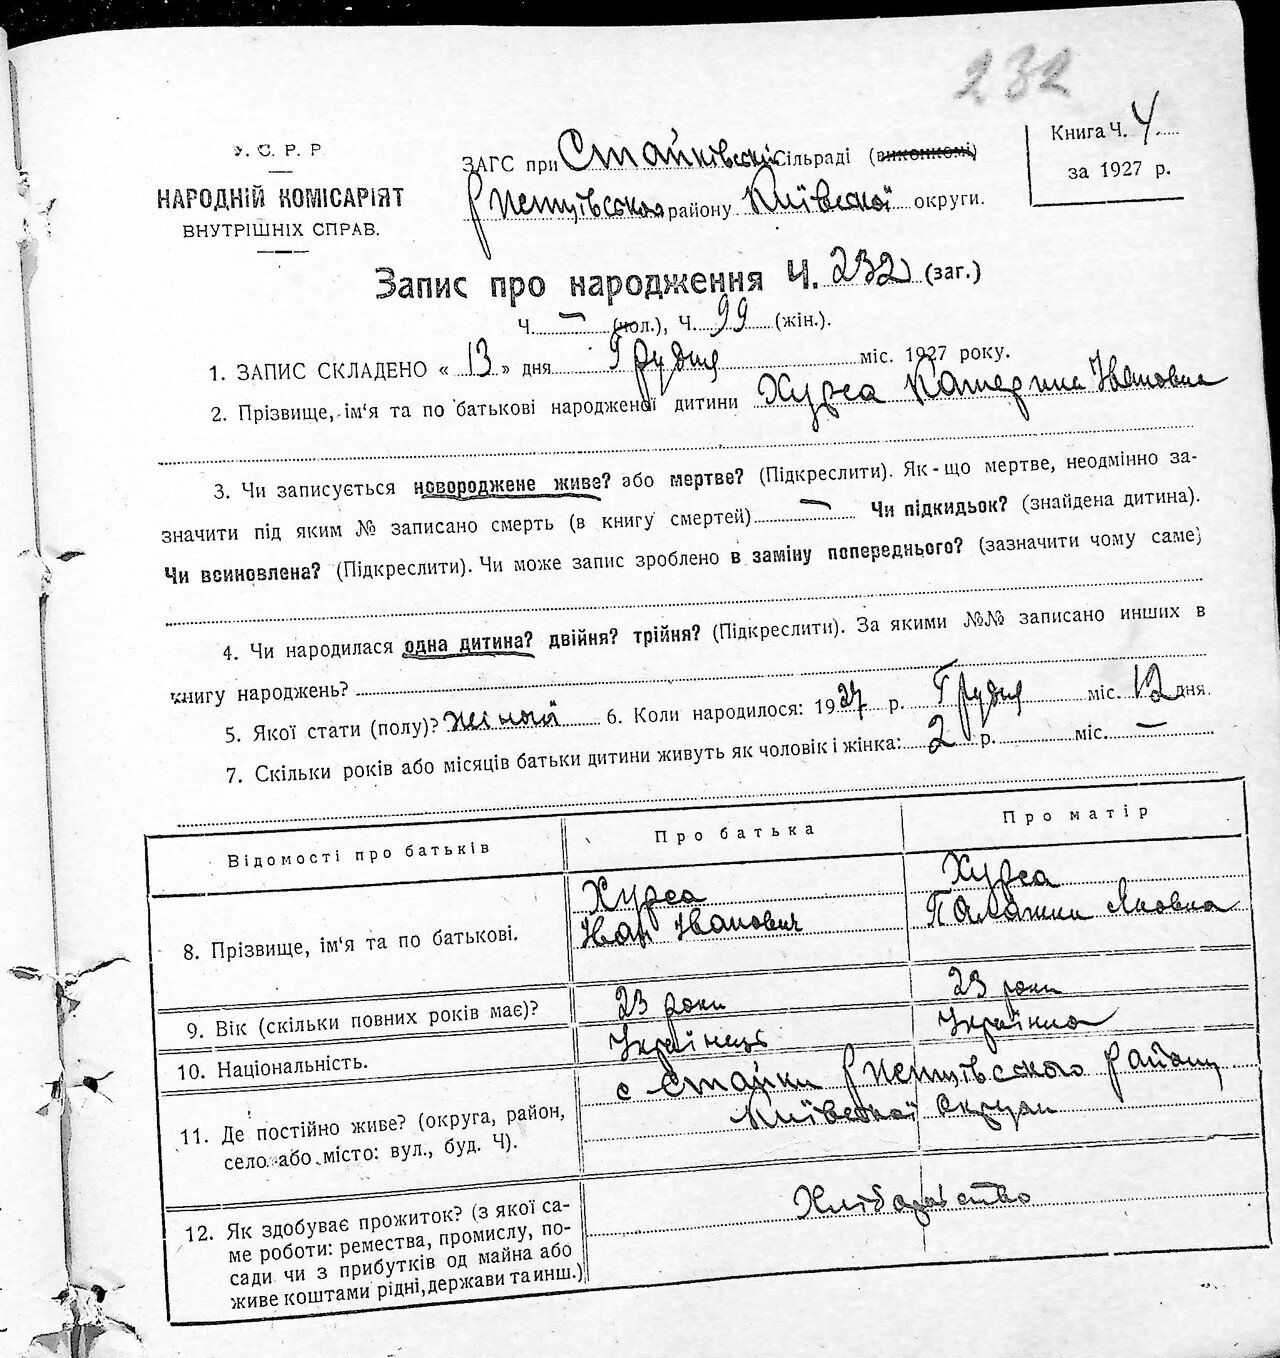 232
У. С. Р. Р.
НАРОДНІЙ КОМІСАРІЯТ
ВНУТРІШНІХ СПРАВ.
ЗАГС при Стайківській Сільраді (виконкомі)
Ржищівського району Київської округи.
Книга Ч. 4
за 1927 р.
Запис про народження Ч. 232 (заг.)
Ч. — (чол.), Ч. 99 (жін.).
1. ЗАПИС СКЛАДЕНО « 13 » дня Грудня міс. 1927 року.
2. Прізвище, ім'я та по батькові народженої дитини Хурса Катерина Івановна
3. Чи записується новороджене живе? або мертве? (Підкреслити). Як-що мертве, неодмінно за-
значити під яким № записано смерть (в книгу смертей) — Чи підкидьок? (знайдена дитина).
Чи всиновлена? (Підкреслити). Чи може запис зроблено в заміну попереднього? (зазначити чому саме)
4. Чи народилася одна дитина? двійня? трійня? (Підкреслити). За якими №№ записано инших в
книгу народжень?
5. Якої стати (полу)? жіночої 6. Коли народилося: 1927 р. Грудня міс. 12 дня.
7. Скільки років або місяців батьки дитини живуть як чоловік і жінка: 2 р. міс. —
Відомості про батьків
Про батька
Про матір
8. Прізвище, ім'я та по батькові.
Хурса
Іван Іванович
Хурса
Палажка Яковна
9. Вік (скільки повних років має)?
23 роки
23 роки
10. Національність.
Українець
Українка
11. Де постійно живе? (округа, район,
село або місто: вул., буд. Ч).
с Стайки Ржищівського району
Київської округи
12. Як здобуває прожиток? (з якої са-
ме роботи: ремества, промислу, по-
сади чи з прибутків од майна або
живе коштами рідні, держави та инш.)
Хліборобство